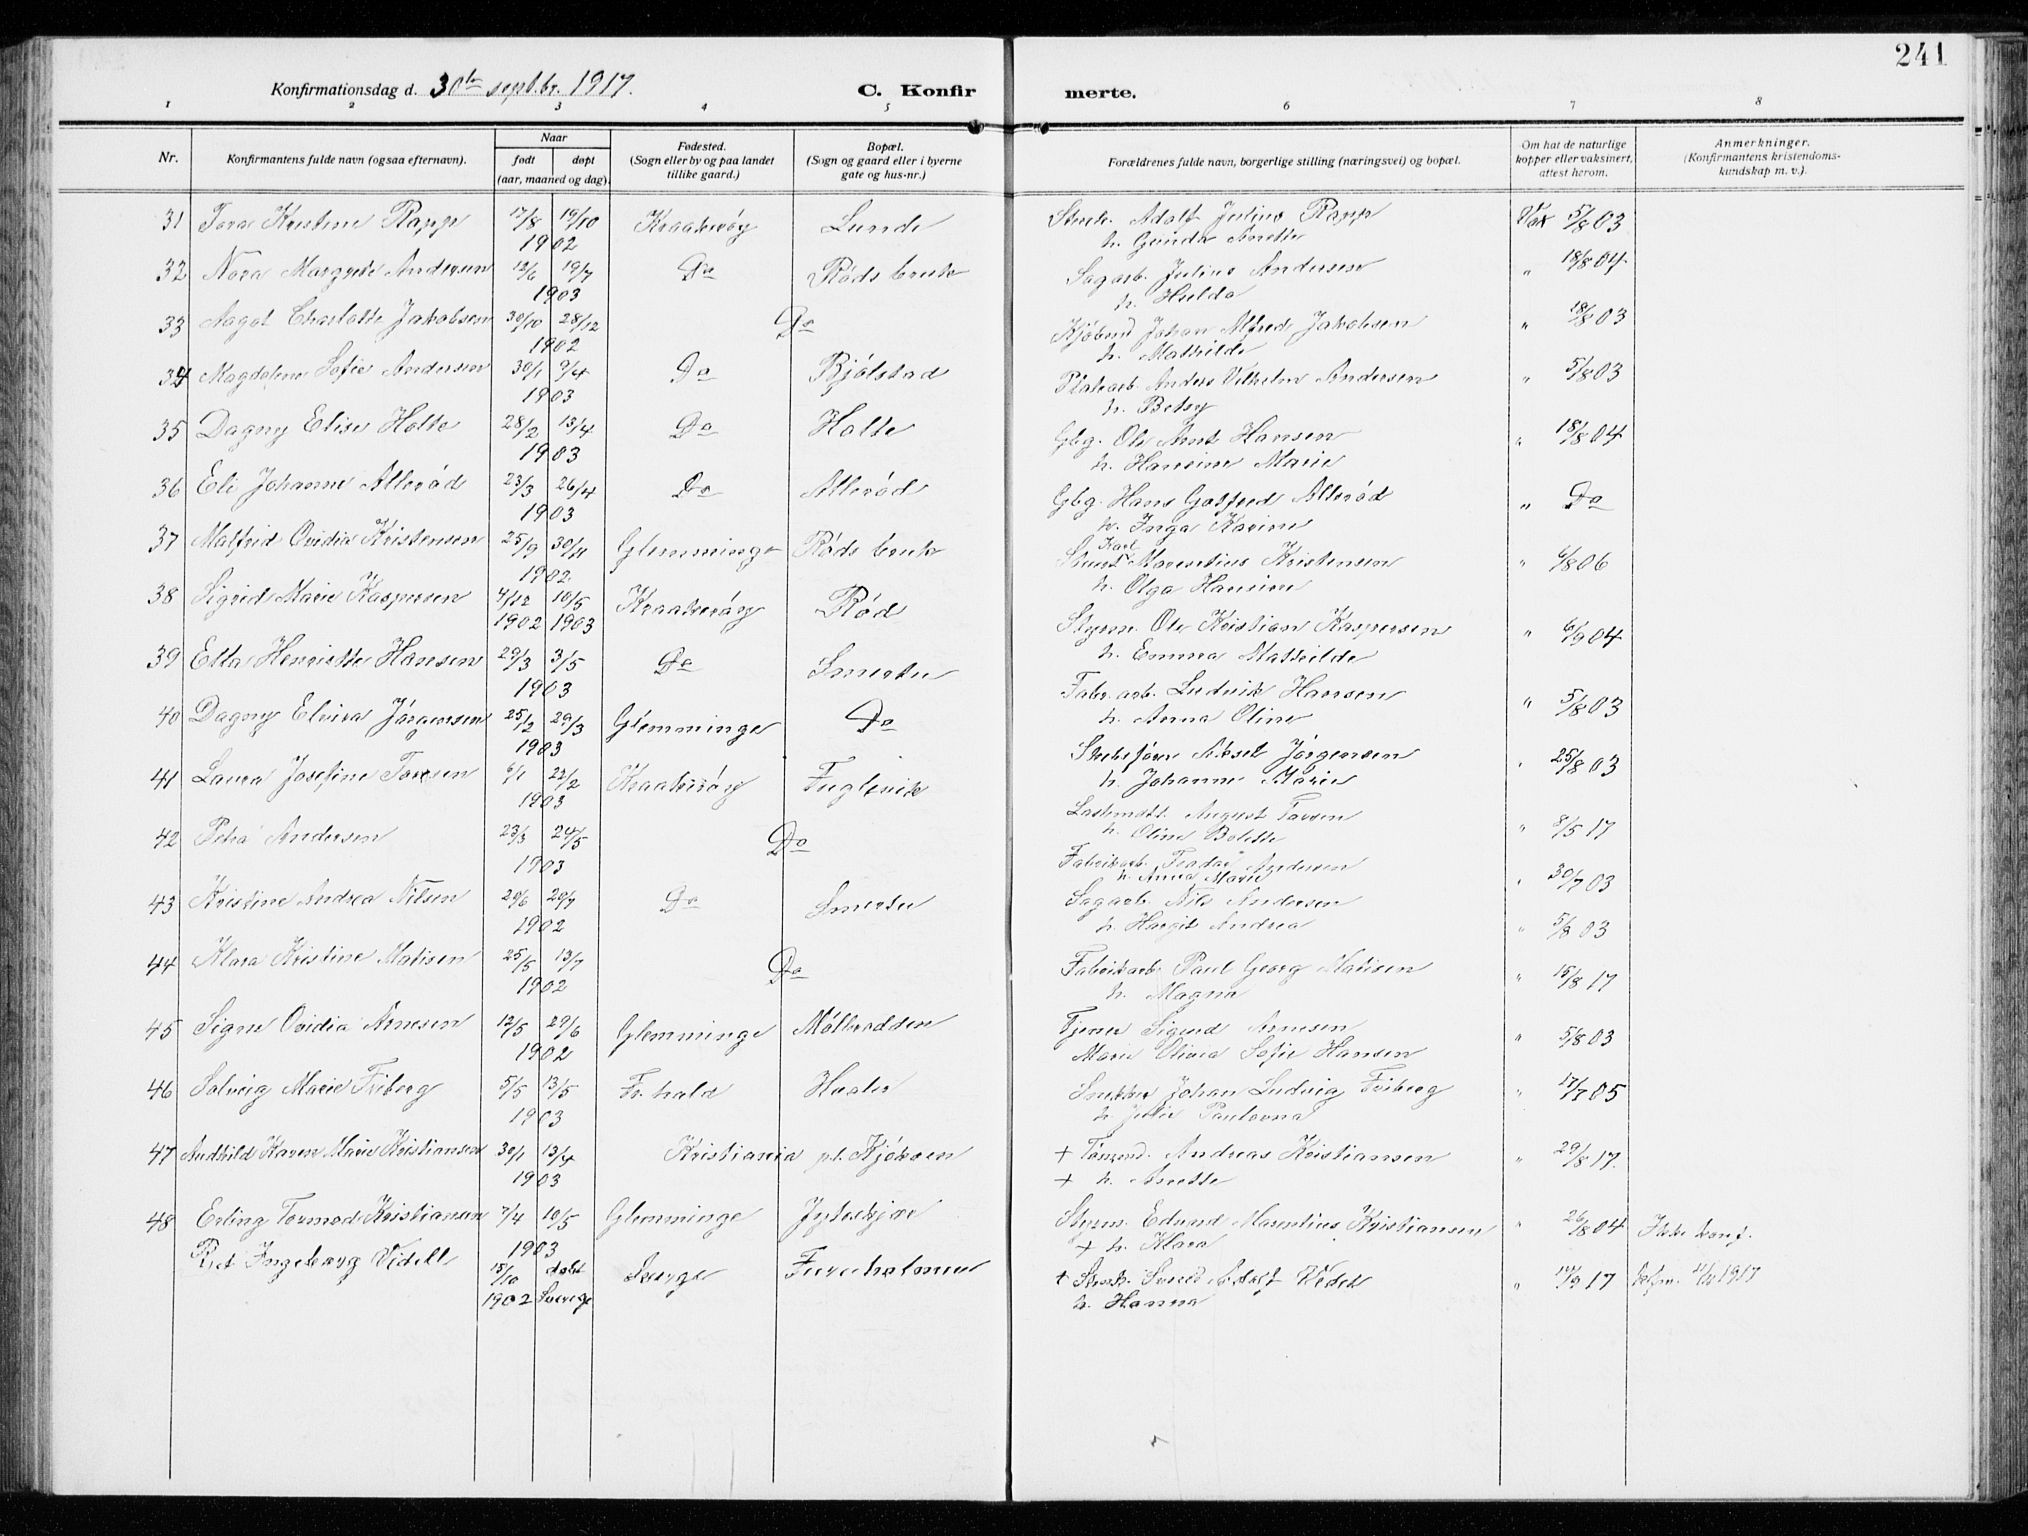 241
Konfirmationsdag d. 30te septbr. 1917.
C. Konfirmerte.
1 2 3 4 5 6 7 8
Nr.
Konfirmantens fulde navn (ogsaa efternavn).
Naar
født døpt
(aar, maaned og dag).
Fødested.
(Sogn eller by og paa landet
tillike gaard.)
Bopæl.
(Sogn og gaard eller i byerne
gate og hus-nr.)
Forældrenes fulde navn, borgerlige stilling (næringsvei) og bopæl.
Om hat de naturlige
kopper eller vaksinert,
attest herom.
Anmerkninger.
(Konfirmantens kristendoms-
kundskap m. v.).
31 Tora Kristine Rapp 17/8 19/10 Kraakerøy Lunde Adolf Julius Rapp Vax 5/8 03
1902 h. Gunda Anette
32 Nora Margrete Andersen 12/6 19/7 Do Røds bruk Sagarb. Julius Andersen " 18/8 04
1903 h. Hulda
33 Aagot Charlotte Jakobsen 30/10 28/12 Do Kjøbmd Johan Alfred Jakobsen " 18/8 03
1902 h. Mathilde
34 Magdalene Sofie Andersen 30/1 9/4 Do Bjølstad Anders Vilhelm Andersen " 5/8 03
1903 h. Betsy
35 Dagny Elise Holte 28/2 13/4 Do Holte Gbg. Ole Arnt Hansen " 18/8 04
1903 h. Hansine Marie
36 Eli Johanne Allerød 23/3 26/4 Do Allerød Gbg. Hans Gotfred Allerød " Do
1903 h. Inga Karine
37 Malfrid Ovidia Kristensen 25/9 30/11 Glemminge Røds bruk Karl Marentius Kristensen " 6/8 06
1902 h. Olga Hansine
38 Sigrid Marie Kaspersen 4/12 10/5 Kraakerøy Rød Styrm. Ole Kristian Kaspersen " 6/9 04
1902 1903 h. Emma Mathilde
39 Etta Henriette Hansen 29/3 3/5 Do Smertu Fabr. arb. Ludvik Hansen " 5/8 03
1903 h. Anna Oline
40 Dagny Elvira Jørgensen 25/2 29/3 Glemminge Do Aksel Jørgensen " 25/8 03
1903 h. Johanne Marie
41 Laura Josefine Torsen 6/1 22/2 Kraakerøy Fuglevik August Torsen " 8/5 17
1903 h. Oline Bolette
42 Petra Andersen 23/3 24/5 Do Fabrikarb. Teodor Andersen " 30/7 03
1903 h. Anna Marie
43 Kristine Andrea Nilsen 29/6 29/7 Do Smertu Sagarb. Nils Andersen " 5/8 03
1902 h. Hargit Andrea
44 Klara Kristine Matisen 25/5 13/7 Do Fabrikarb. Paul Georg Matisen " 15/8 17
1902 h. Magna
45 Signe Ovidia Arnesen 12/5 29/6 Glemminge Møllerodden Tjener Sigurd Arnesen " 5/8 03
1902 Marie Olivia Sofie Hansen
46 Solveig Marie Friberg 5/5 13/5 Fr. hald Husler Snekker Johan Ludvig Friberg " 17/7 05
1903 h. Julie Paulovna
47 Audhild Karen Marie Kristiansen 30/1 13/4 Kristiania pl. Kjøkøen + Tømmd. Andreas Kristiansen " 29/8 17.
1903 + h. Anette
48 Erling Tormod Kristiansen 7/4 10/5 Glemminge Jyteskjær Styrm. Edvard Marentius Kristiansen " 26/8 04 Ikke konf.
1903 + h. Klara
Rut Ingeborg Videll 15/10 døbt Sverge Furuholmen + Svend Adolf Videll " 14/9 17 Kfm. 11/11 1917
1902 Sverge h. Hanna